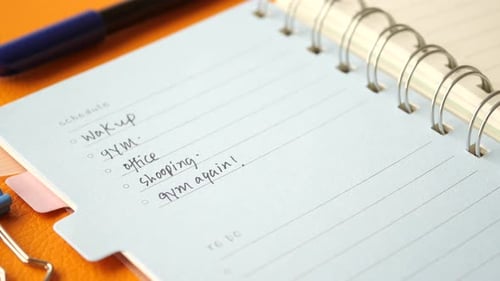 schedule
wake up
gym.
office
shooping.
gym again!
TO DO